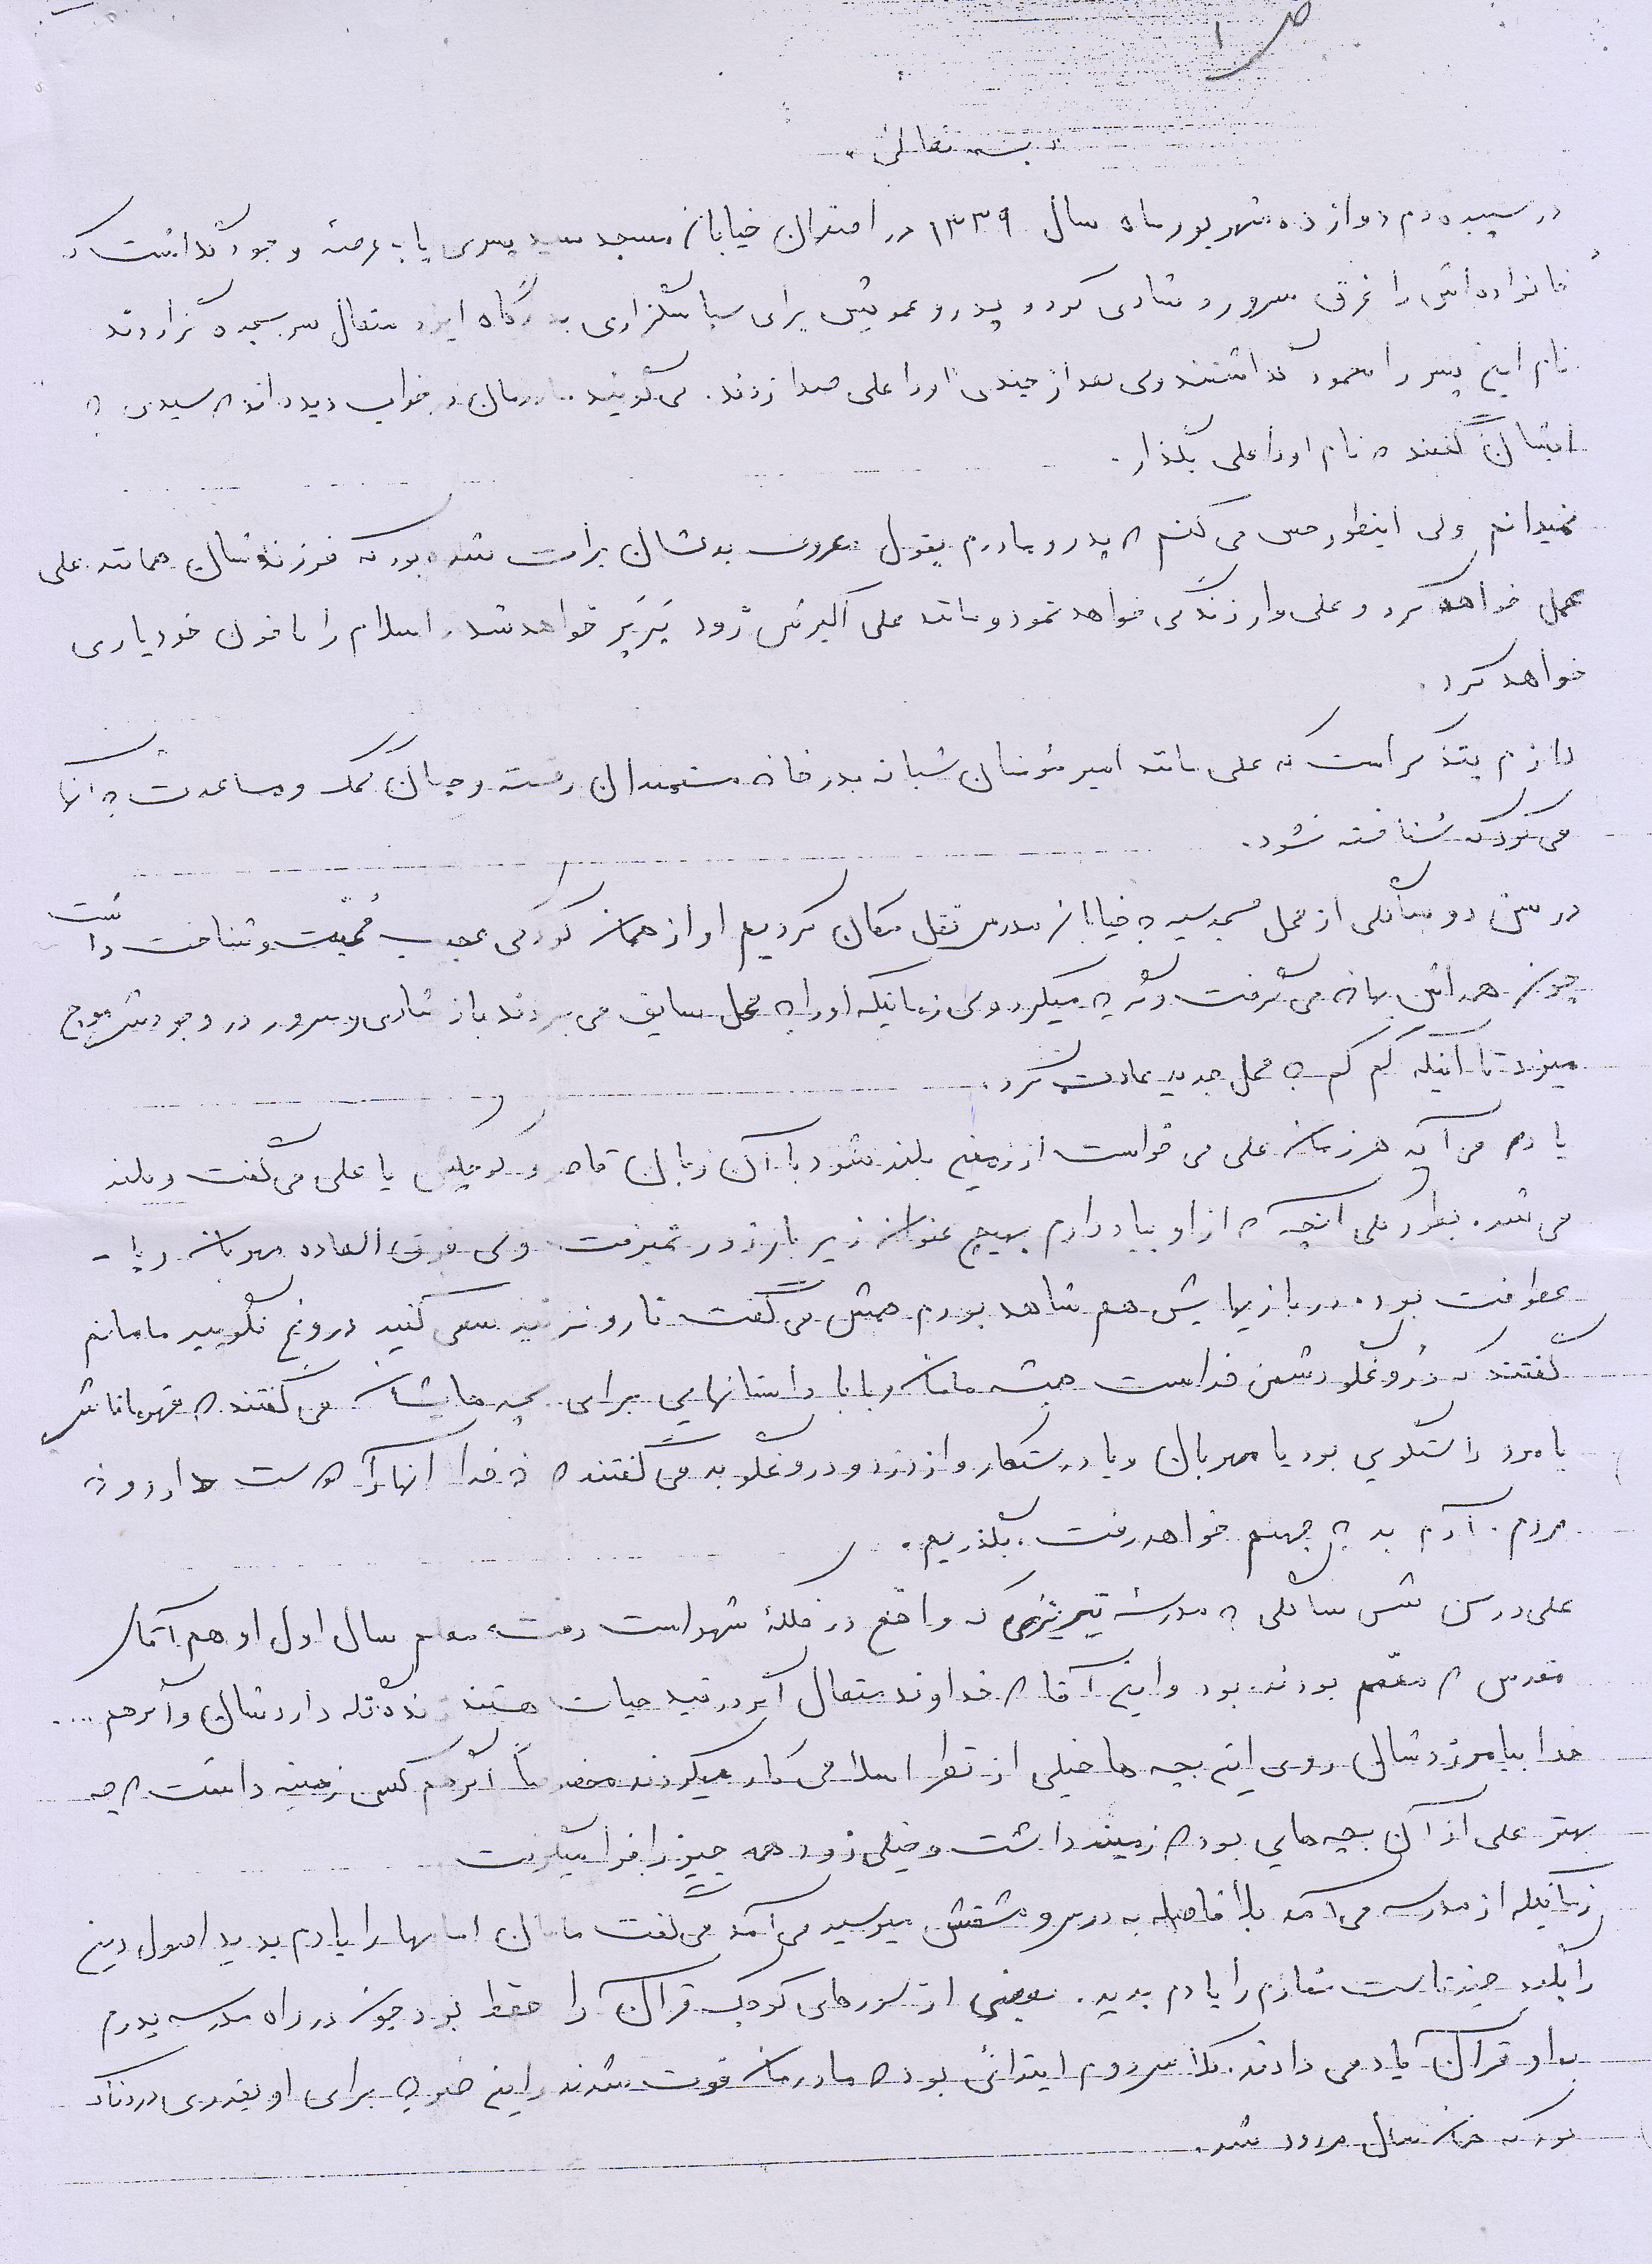 ص ۱
« بسمه تعالی »
در سپیده دم دوازده شهریور ماه سال ۱۳۳۹ در اصفهان خیابان مسجد سید پسری پا به عرصه وجود گذاشت که
خانواده اش را غرق سرور و شادی کرد و پدر و عمویش برای سپاسگزاری بدرگاه ایزد متعال سر بسجده گزاردند
نام این پسر را محمود گذاشتند ولی بعد از چندی او را علی صدا زدند. می گویند مادرمان در خواب دیده اند که سیدی به
ایشان گفتند که نام او را علی بگذار.
نمیدانم ولی اینطور حس می کنم که پدر و مادرم بقول معروف بدلشان برات شده بود که فرزندشان همانند علی
عمل خواهد کرد و علی وار زندگی خواهد نمود و مانند علی اکبرش زود پرپر خواهد شد و اسلام را با خون خود یاری
خواهد کرد.
لازم بتذکر است که علی مانند امیر مؤمنان شبانه بدر خانه مستمندان رفته و چنان کمک و مساعدت به آنها
می کرد که شناخته نشود.
در سن دو سالگی از محل مسجد سید به خیابان مدرس نقل مکان کردیم او از همان کودکی عجیب محبت و شناخت داشت
چون همه اش بهانه می گرفت و گریه میکرد ولی زمانیکه او را به محل سابق می بردند باز شادی و سرور در وجودش موج
میزد تا اینکه کم کم به محل جدید عادت کرد.
یادم می آید هر زمان علی می خواست از زمین بلند شود با آن زبان قاصر و کوچکش یا علی می گفت و بلند
می شد. بطور کلی آنچه که از او بیاد دارم بهیچ عنوان زیر بار زور نمیرفت ولی فوق العاده مهربان و با -
عطوفت بود. در بازیهایش هم شاهد بودم همش می گفت نارو نزنید سعی کنید دروغ نگویید مامانم
گفتند که دروغگو دشمن خداست همیشه مامان و بابا داستانهایی برای بچه هایشان می گفتند که قهرمانانش
یا مرد راستگویی بود یا مهربان و یا درستکار و از دزد و دروغگو بد می گفتند که نه خدا آنها را دوست دارد و نه
مردم. آدم بد به جهنم خواهد رفت، بگذریم.
علی در سن شش سالگی به مدرسه که واقع در فلکه شهداست رفت، معلم سال اول او هم آقای
مقدس که معمم بودند بود و این آقا که خداوند متعال اگر در قید حیات هستند زنده نگه داردشان و اگر هم ....
خدا بیامرزدشان روی این بچه ها خیلی از نظر اسلامی کار میکردند مخصوصاً اگر هم کسی زمینه داشت که چه
بهتر علی از آن بچه هایی بود که زمینه داشت و خیلی زود همه چیز را فرا میگرفت
زمانیکه از مدرسه می آمد بلافاصله به درس و مشقش میرسید می آمد می گفت مامان امامها را یادم بدید اصول دین
را بگید چندتاست نمازم را یادم بدید. بعضی از سوره های کوچک قرآن را حفظ بود چون در راه مدرسه پدرم
به او قرآن یاد می دادند. کلاس دوم ابتدائی بود که مادرمان فوت شدند و این ضربه برای او بقدری دردناک
بود که همان سال مردود شد.